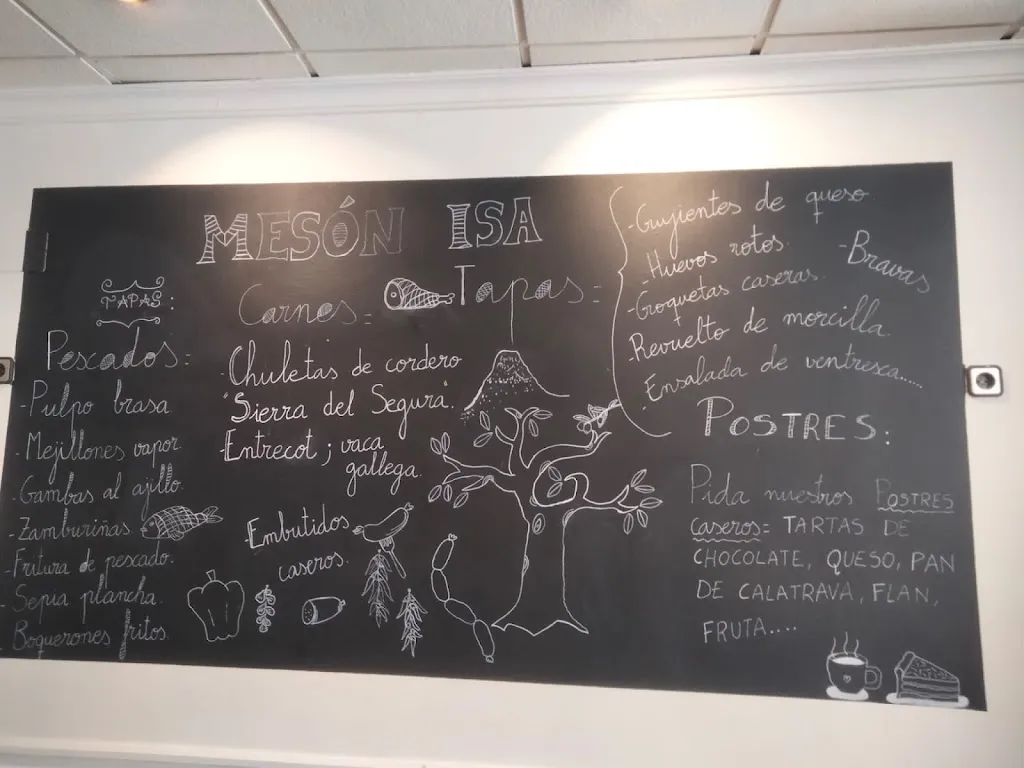 MESÓN ISA
TAPAS:
Pescados:
-Pulpo brasa
-Mejillones vapor
-Gambas al ajillo
-Zamburiñas
-Fritura de pescado.
-Sepia plancha.
Boquerones fritos.
Carnes:
-Chuletas de cordero
"Sierra del Segura".
-Entrecot ; vaca
gallega.
Embutidos
caseros.
Tapas:
-Crujientes de queso
-Huevos rotos.
-Bravas
-Croquetas caseras.
-Revuelto de morcilla
-Ensalada de ventresca.....
POSTRES:
Pida nuestros POSTRES
caseros= TARTAS DE
CHOCOLATE, QUESO, PAN
DE CALATRAVA, FLAN,
FRUTA....